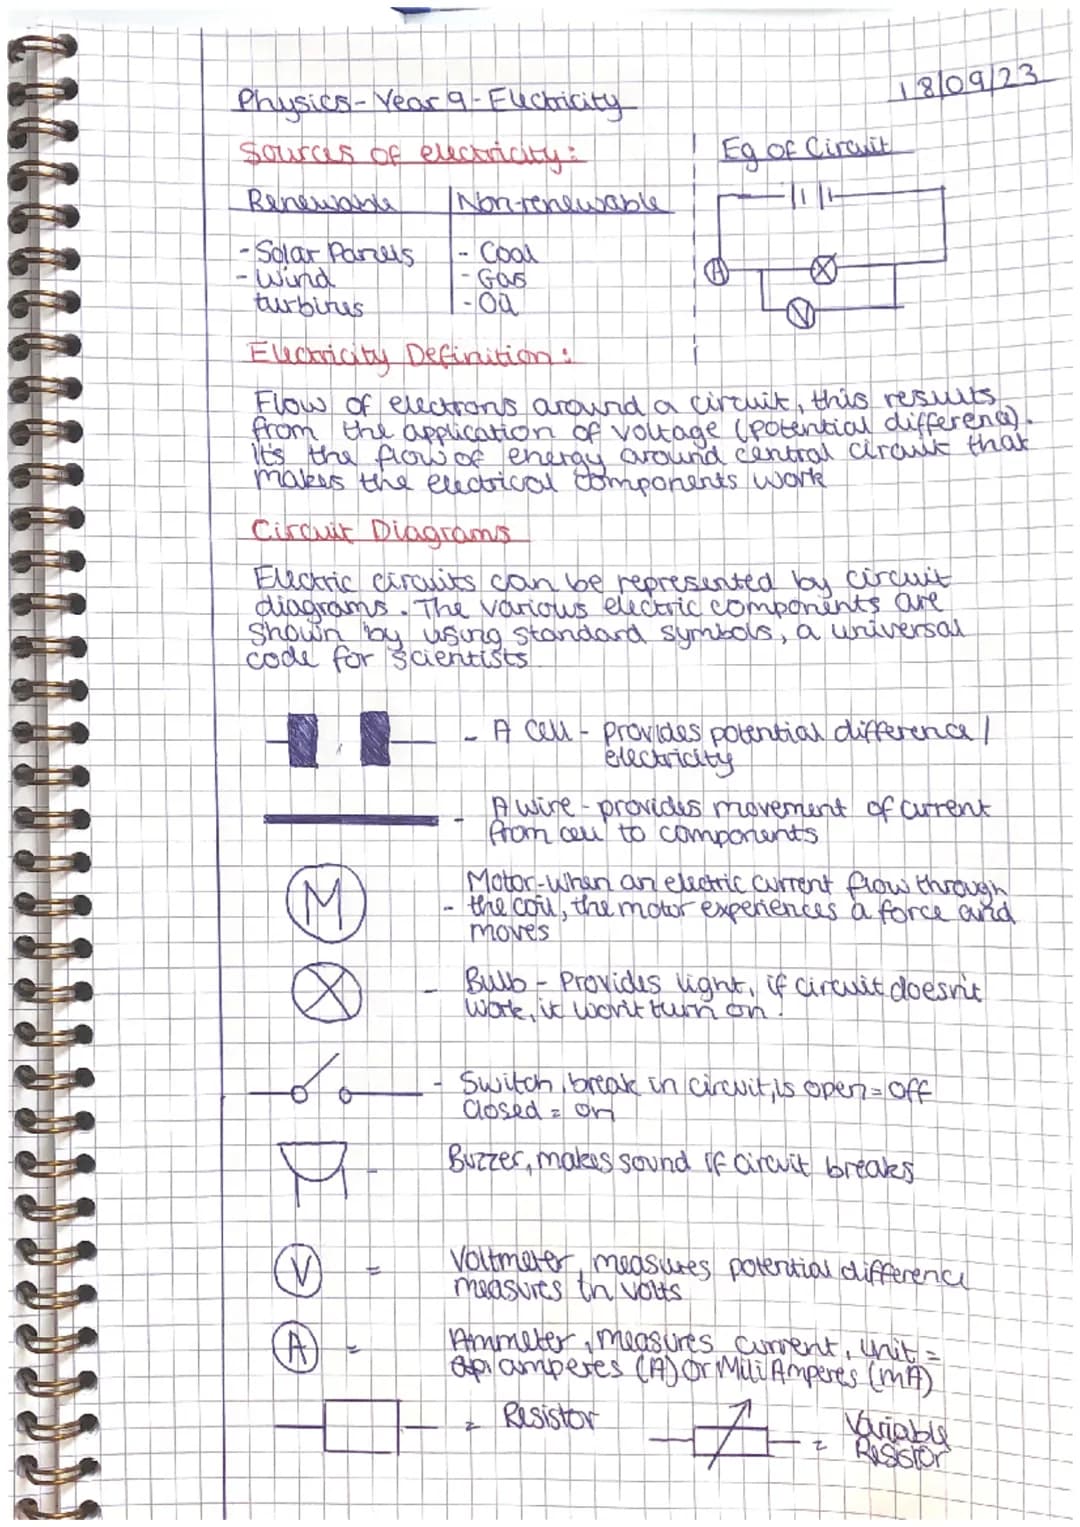 18/09/23
Physics - Year 9 - Electricity
Sources of electricity:
Renewable
Non-renewable
- Solar Panels
- Wind
turbines
- Coal
- Gas
- Oil
Eg of Circuit
A
V
Electricity Definition:
Flow of electrons around a circuit, this results
from the application of voltage (potential difference).
it's the flow of energy around central circuit that
makes the electrical components work
Circuit Diagrams
Electric circuits can be represented by circuit
diagrams. The various electric components are
shown by using standard symbols, a universal
code for scientists
- A cell - provides potential difference /
electricity
- A wire - provides movement of current
from cell to components
M
Motor - when an electric current flow through
- the coil, the motor experiences a force and
moves
- Bulb - Provides light, if circuit doesn't
work, it won't turn on.
- Switch, break in circuit, is open = off
Closed = on
- Buzzer, makes sound if circuit breaks
V = Voltmeter, measures potential difference
measures in volts
A = Ammeter, measures current, unit =
amperes (A) or Mili Amperes (mA)
= Resistor
= Variable
Resistor